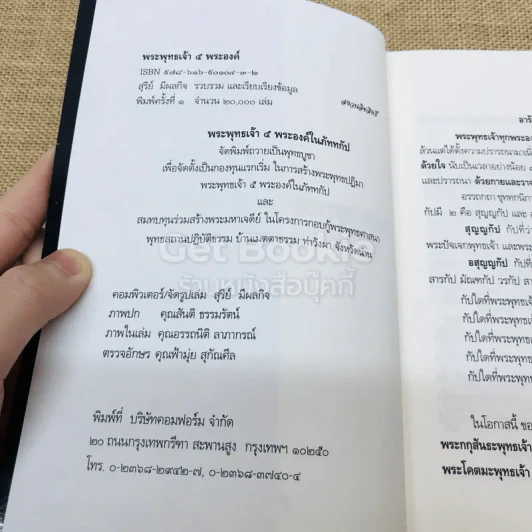 พระพุทธเจ้า ๕ พระองค์
ISBN ๙๗๘-๖๑๖-๙๐๑๐๔-๓-๒
สุรีย์ มีผลกิจ รวบรวม และเรียบเรียงข้อมูล
พิมพ์ครั้งที่ ๑ จำนวน ๒๐,๐๐๐ เล่ม
สงวนลิขสิทธิ์
พระพุทธเจ้า ๕ พระองค์ในภัททกัป
จัดพิมพ์ถวายเป็นพุทธบูชา
เพื่อจัดตั้งเป็นกองทุนแรกเริ่ม ในการสร้างพระพุทธปฏิมา
พระพุทธเจ้า ๕ พระองค์ในภัททกัป
และ
สมทบทุนร่วมสร้างพระมหาเจดีย์ ในโครงการกอบกู้พระพุทธศาสนา
พุทธสถานปฏิบัติธรรม บ้านเมตตาธรรม ท่าวังผา จังหวัดน่าน
Get Bookie
ร้านหนังสือบุ๊คกี้
คอมพิวเตอร์/จัดรูปเล่ม สุรีย์ มีผลกิจ
ภาพปก คุณสันติ ธรรมรัตน์
ภาพในเล่ม คุณอรรถนิติ ลาภากรณ์
ตรวจอักษร คุณฟ้ามุ่ย สุกัณศีล
พิมพ์ที่ บริษัทคอมฟอร์ม จำกัด
๒๐ ถนนกรุงเทพกรีฑา สะพานสูง กรุงเทพฯ ๑๐๒๕๐
โทร. ๐-๒๓๖๘-๒๙๔๒-๗, ๐-๒๓๖๘-๓๗๔๐-๔
พระพุทธเจ้าทุกพระอง
ล้วนแต่ได้ตั้งความปรารถนามาเนิ
ด้วยใจ นับเป็นเวลาอย่างน้อย
และปรารถนา ด้วยกายและวาจ
อรรถกถา ขุททกนิกา
กัปมี ๒ คือ สุญญกัป และ
สุญญกัป กัปที่ว่
พระปัจเจกพุทธเจ้า และพระ
อสุญญกัป กัปที่
สารกัป มัณฑกัป วรกัป
กัปใดที่พระพุทธเจ้
กัปใดที่พระพุทธเจ้
กัปใดที่พระพุทธเจ้
กัปใดที่พระพุทธเจ้
กัปใดที่พระพุทธ
ในโอกาสนี้ ขอ
พระกกุสันธะพุทธเจ้า
พระโคตมะพุทธเจ้า